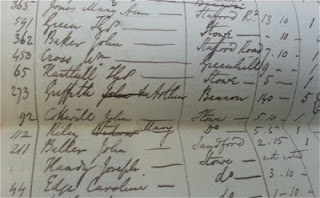 365 Jones Mary Ann — Stafford Rd 13 . 10 - 1
591 Green Thos — Stowe - 10 -
362 Baker John — Stafford Road 7 . 10 - 1
450 Cross Wm — Greenhill 9
65 Thos — Stowe - 5 - 1
273 Griffith John & Arthur Beacon 140 - 5
92 John — Stowe - 5 . 10 - 1
112 Riley Mary Do 5 . 5 1
211 Butler John — Sandford 2 . 15 1
Handy Joseph — Stowe
44 Edge Caroline — do 3 - 10 -
do - 1 - 10 -